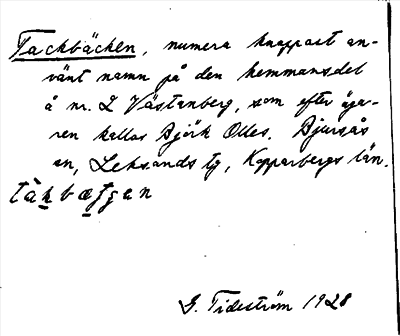 Tackbäcken, numera knappast an-
vänt namn på den hemmansdel
å nr. 2 Västanberg, som efter äga-
ren kallas Björk Olles. Bjursås
sn, Leksands tg, Kopparbergs län.
G. Tideström 1928